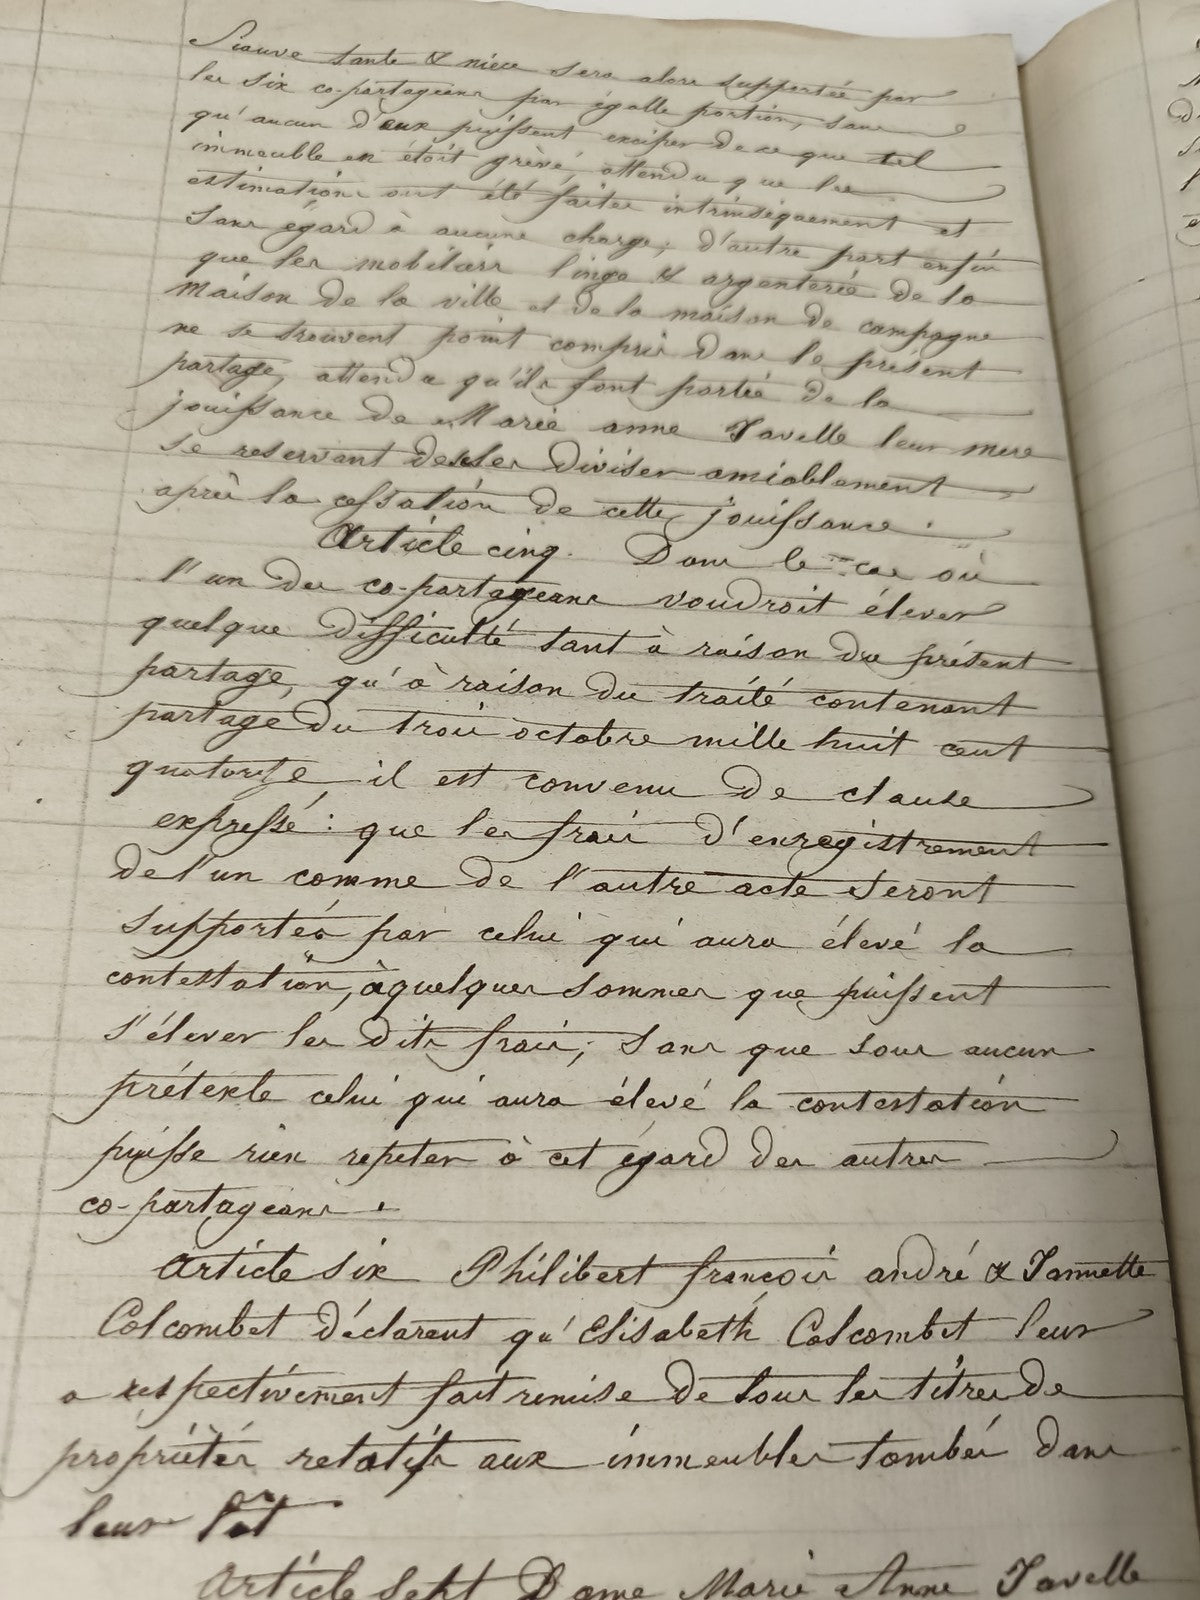 Siauve tante & niece sera alors supportée par
les six co-partageans par égalle portion, sans
qu'aucun d'eux puissent exciper de ce que tel
immeuble en étoit grèvé, attendu que les
estimations ont été faites intrinséquement et
sans égard à aucune charge; d'autre part enfin
que les mobiliers linge & argenterie de la
maison de la ville et de la maison de campagne
ne se trouvent point compris dans le présent
partage, attendu qu'ils font partie de la
jouissance de Marie anne Javelle leur mere
se reservant de les diviser amiablement
après la cessation de cette jouissance.
Article cinq. Dans le cas où
l'un des co-partageans voudroit élever
quelque difficulté tant à raison du présent
partage, qu'à raison du traité contenant
partage du trois octobre mille huit cent
quatorze, il est convenu de clause
expressé: que les frais d'enregistrement
de l'un comme de l'autre acte seront
supportés par celui qui aura élevé la
contestation, à quelques sommes que puissent
s'élever les dits frais; sans que sous aucun
prétexte celui qui aura élevé la contestation
puisse rien repeter à cet égard des autres
co-partageans.
Article six Philibert françois andré & Jannette
Colcombet déclarent qu'Elisabeth Colcombet leur
a respectivement fait remise de tous les titres de
propriétés relatifs aux immeubles tombés dans
leur lot
Article sept Dame Marie Anne Javelle